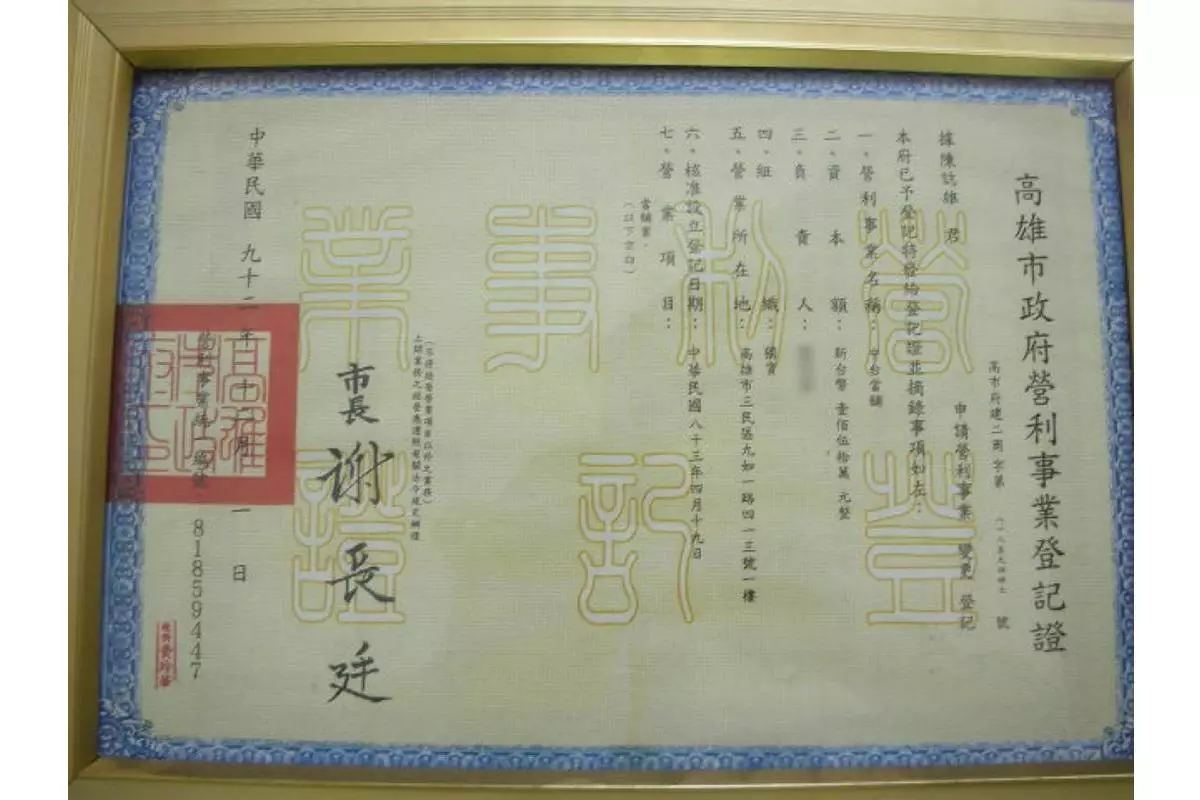 高雄市政府營利事業登記證
高市府建二商字第 號
據陳誌雄君 申請營利事業 變更 登記
本府已予登記特發給登記證並摘錄事項如左：
一、營利事業名稱：中台當舖
二、資本額：新台幣 壹佰伍拾萬 元整
三、負責人：
四、組織：獨資
五、營業所在地：高雄市三民區九如一路四一三號一樓
六、核准設立登記日期：中華民國八十三年四月十九日
七、營業項目：
當舖業。
（以下空白）
（不得經營營業項目以外之業務）
市長 謝長廷
中華民國 九十二年 十二月 一 日
營利事業統一編號 81859447
營利事業
登記證